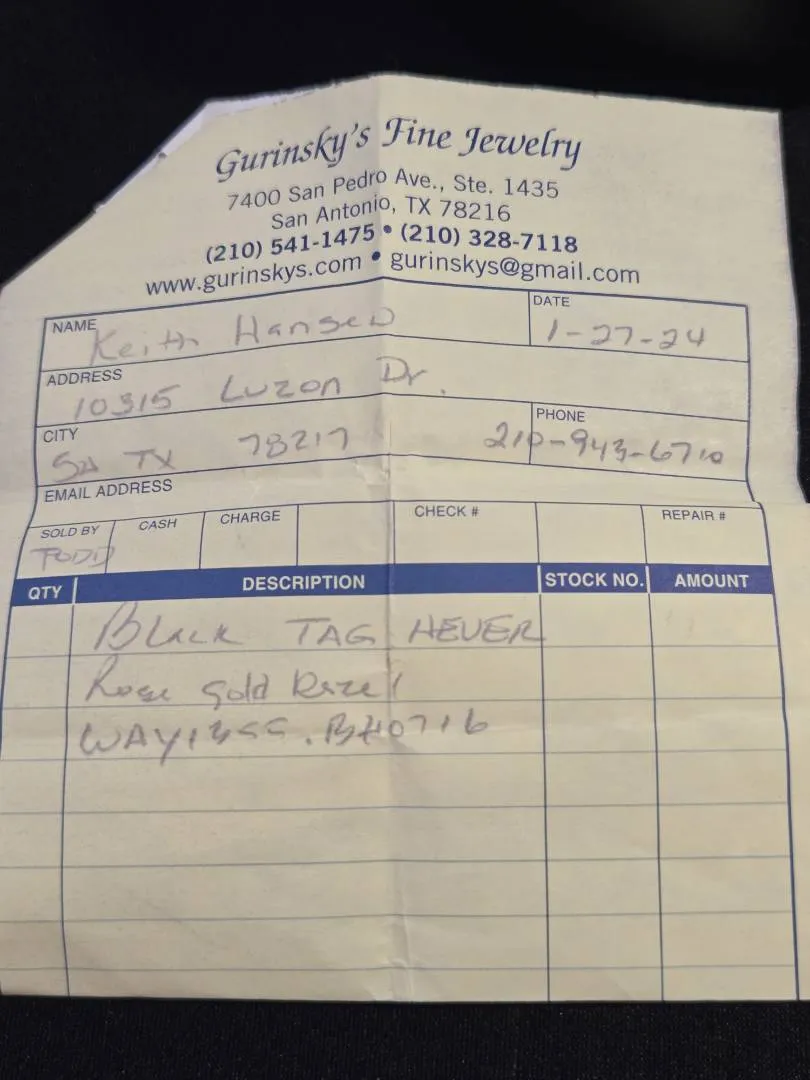 Gurinsky's Fine Jewelry
7400 San Pedro Ave., Ste. 1435
San Antonio, TX 78216
(210) 541-1475 • (210) 328-7118
www.gurinskys.com • gurinskys@gmail.com
NAME Keith Hansen DATE 1-27-24
ADDRESS 10315 Luzon Dr.
CITY SA TX 78217 PHONE 210-943-6710
EMAIL ADDRESS
SOLD BY TODD CASH CHARGE CHECK # REPAIR #
QTY DESCRIPTION STOCK NO. AMOUNT
Black TAG HEUER
Rose gold